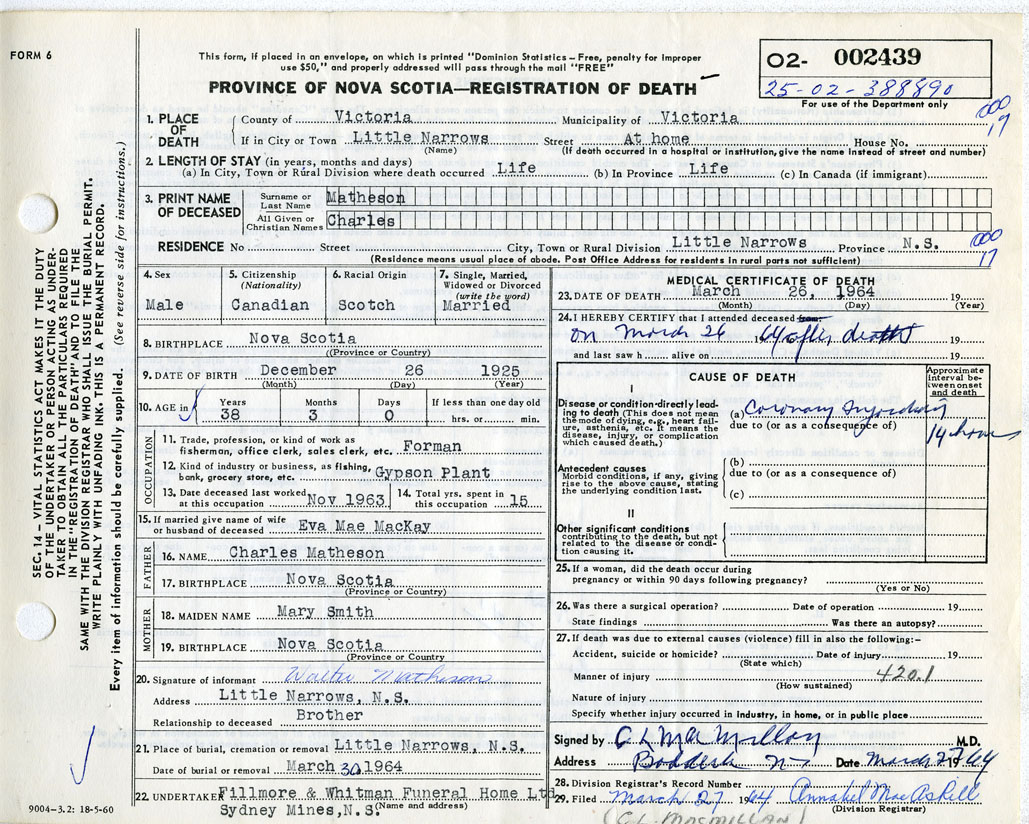 FORM 6
This form, if placed in an envelope, on which is printed "Dominion Statistics – Free, penalty for improper
use $50," and properly addressed will pass through the mail "FREE"
PROVINCE OF NOVA SCOTIA—REGISTRATION OF DEATH
02- 002439
25-02-388890
For use of the Department only
000
19
1. PLACE OF DEATH
County of Victoria Municipality of Victoria
If in City or Town Little Narrows Street At home House No.
(Name) (If death occurred in a hospital or institution, give the name instead of street and number)
2. LENGTH OF STAY (in years, months and days)
(a) In City, Town or Rural Division where death occurred Life (b) In Province Life (c) In Canada (if immigrant)
3. PRINT NAME OF DECEASED
Surname or Last Name Matheson
All Given or Christian Names Charles
RESIDENCE No Street City, Town or Rural Division Little Narrows Province N.S.
(Residence means usual place of abode. Post Office Address for residents in rural parts not sufficient)
000
17
4. Sex
Male
5. Citizenship
(Nationality)
Canadian
6. Racial Origin
Scotch
7. Single, Married,
Widowed or Divorced
(write the word)
Married
8. BIRTHPLACE Nova Scotia
(Province or Country)
9. DATE OF BIRTH December 26 1925
(Month) (Day) (Year)
10. AGE in
Years Months Days If less than one day old
38 3 0 hrs. or min.
OCCUPATION
11. Trade, profession, or kind of work as
fisherman, office clerk, sales clerk, etc. Forman
12. Kind of industry or business, as fishing,
bank, grocery store, etc. Gypson Plant
13. Date deceased last worked
at this occupation Nov 1963
14. Total yrs. spent in
this occupation 15
15. If married give name of wife
or husband of deceased Eva Mae MacKay
FATHER
16. NAME Charles Matheson
17. BIRTHPLACE Nova Scotia
(Province or Country)
MOTHER
18. MAIDEN NAME Mary Smith
19. BIRTHPLACE Nova Scotia
(Province or Country
20. Signature of informant Walter Matheson
Address Little Narrows, N.S.
Relationship to deceased Brother
21. Place of burial, cremation or removal Little Narrows, N.S.
Date of burial or removal March 30, 1964
22. UNDERTAKER Fillmore & Whitman Funeral Home Ltd
(Name and address)
Sydney Mines, N.S.
MEDICAL CERTIFICATE OF DEATH
23. DATE OF DEATH March 26, 1964 19
(Month) (Day) (Year)
24. I HEREBY CERTIFY that I attended deceased from:
on March 26 1964 after death 19
and last saw h alive on 19
CAUSE OF DEATH
Approximate
interval be-
tween onset
and death
I
Disease or condition directly lead-
ing to death (This does not mean
the mode of dying, e.g., heart fail-
ure, asthenia, etc. It means the
disease, injury, or complication
which caused death.)
(a) Coronary
due to (or as a consequence of)
14 hours
Antecedent causes
Morbid conditions, if any, giving
rise to the above cause, stating
the underlying condition last.
(b)
due to (or as a consequence of)
(c)
II
Other significant conditions
contributing to the death, but not
related to the disease or condi-
tion causing it.
25. If a woman, did the death occur during
pregnancy or within 90 days following pregnancy?
(Yes or No)
26. Was there a surgical operation? Date of operation 19
State findings Was there an autopsy?
27. If death was due to external causes (violence) fill in also the following:-
Accident, suicide or homicide? Date of injury 19
(State which)
Manner of injury 420.1
(How sustained)
Nature of injury
Specify whether injury occurred in industry, in home, or in public place
Signed by C L MacMillan M.D.
Address Baddeck N.S. Date March 27/64
28. Division Registrar's Record Number
29. Filed March 27 1964 Annabel MacAskill
(Division Registrar)
(C-L-MACMILLAN)
SEC. 14 – VITAL STATISTICS ACT MAKES IT THE DUTY
OF THE UNDERTAKER OR PERSON ACTING AS UNDER-
TAKER TO OBTAIN ALL THE PARTICULARS REQUIRED
IN THE "REGISTRATION OF DEATH" AND TO FILE THE
SAME WITH THE DIVISION REGISTRAR WHO SHALL ISSUE THE BURIAL PERMIT.
WRITE PLAINLY WITH UNFADING INK. THIS IS A PERMANENT RECORD.
Every item of information should be carefully supplied. (See reverse side for instructions.)
9004-3.2: 18-5-60